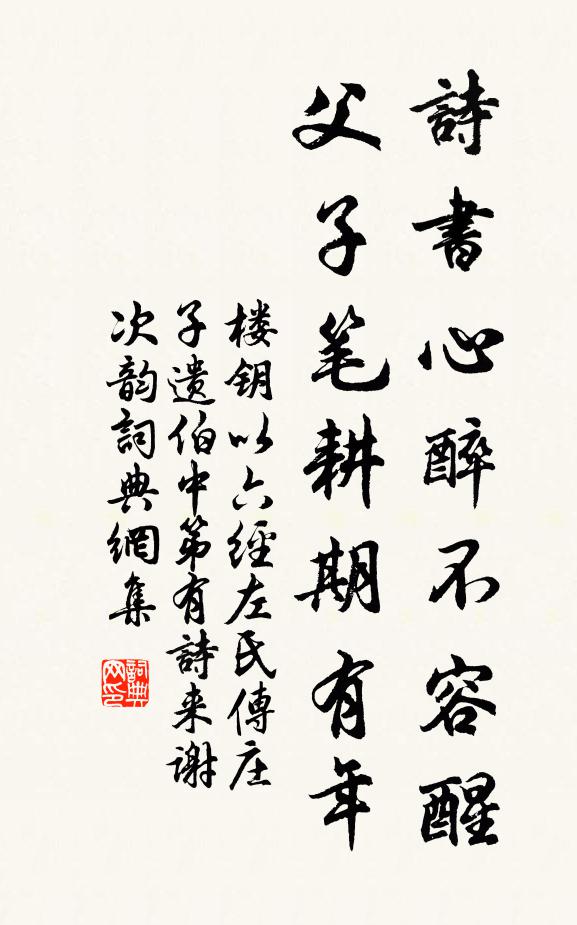 詩書心醉不容醒
父子笔耕期有年
楼钥以六經左氏傳庄
子遗伯中第有詩来谢
次韵詞典網集
詞典网印